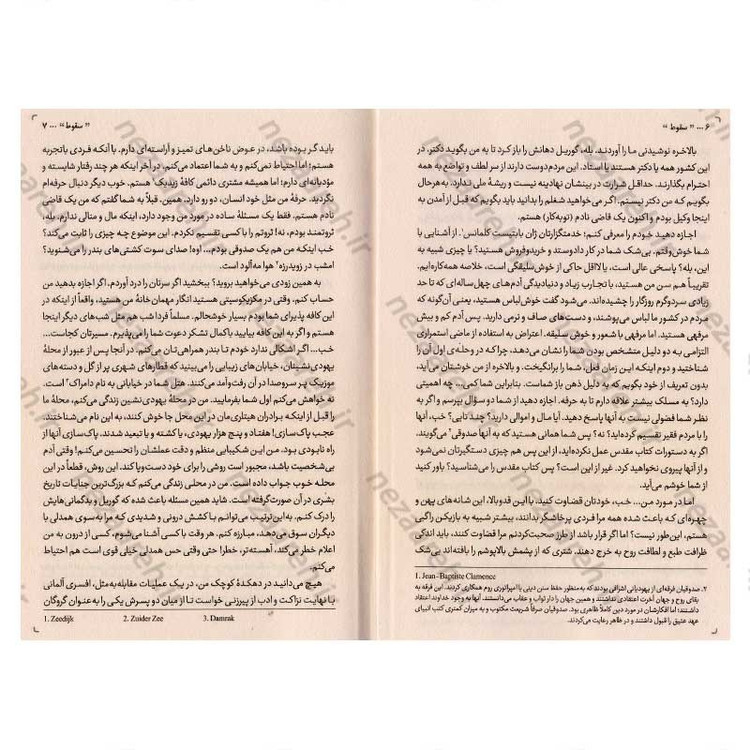 ۶ ... " سقوط "
بالاخره نوشیدنی ما را آوردند. بله، گوریل دهانش را باز کرد تا به من بگوید دکتر. در
این کشور همه یا دکتر هستند یا استاد. این مردم دوست دارند از سر لطف و تواضع به همه
احترام بگذارند. حداقل شرارت در بینشان نهادینه نیست و ریشهٔ ملی ندارد. به‌هرحال
بگویم که من دکتر نیستم. اگر می‌خواهید شغلم را بدانید باید بگویم که قبل از آمدن به
اینجا وکیل بودم و اکنون یک قاضی نادم (توبه‌کار) هستم.
اجازه بدهید خودم را معرفی کنم؛ خدمتگزارتان ژان باپتیست کلمانس¹. از آشنایی با
شما خوش‌وقتم. بی‌شک شما در کار دادوستد و خریدوفروش هستید؟ یا چیزی شبیه به
این، بله؟ پاسخی عالی است، یا لااقل حاکی از خوش‌سلیقگی است، خلاصه همه‌کاره‌ایم.
تقریباً هم سن من هستید، با تجارب زیاد و دنیادیدگی آدم‌های چهل‌ساله‌ای که تا حد
زیادی سردوگرم روزگار را چشیده‌اند. می‌شود گفت خوش‌لباس هستید، یعنی آن‌گونه که
مردم در کشور ما لباس می‌پوشند، و دست‌های صاف و نرمی دارید. پس آدم کم و بیش
مرفهی هستید. اما مرفهی با شعور و خوش سلیقه. اعتراض به استفاده از ماضی استمراری
التزامی به دو دلیل متشخص بودن شما را نشان می‌دهد، چراکه در وحله‌ی اول آن را
شناختید و دوم اینکه این زمان فعل، شما را برانگیخت. و بالاخره از من خوشتان می‌آید،
بدون تعریف از خود بگویم که به دلیل ذهن باز شماست. بنابراین شما کمی... چه اهمیتی
دارد؟ به مسلک بیشتر علاقه دارم تا به حرفه. اجازه دهید از شما دو سؤال بپرسم و اگر به
نظر شما فضولی نیست به آنها پاسخ دهید. آیا مال و اموالی دارید؟ چند تایی؟ خب، آنها
را با مردم فقیر تقسیم کرده‌اید؟ نه؟ پس شما همانی هستید که به آنها صدوقی² می‌گویند.
اگر به دستورات کتاب مقدس عمل نکرده‌اید، از این پس هم چیزی دستگیرتان نمی‌شود
و از آنها پیروی نخواهید کرد. غیر از این است؟ پس کتاب مقدس را می‌شناسید؟ باور کنید
از شما خوشم می‌آید.
اما در مورد من... خب، خودتان قضاوت کنید، با این قدوبالا، این شانه‌های پهن و
چهره‌ای که باعث شده همه مرا فردی پرخاشگر بدانند، بیشتر شبیه به بازیکن راگبی
هستم، این‌طور نیست؟ اما اگر قرار باشد از طرز صحبت‌کردنم مرا قضاوت کنند، باید اندکی
ظرافت طبع و لطافت روح به خرج دهند. شتری که از پشمش بالاپوشم را بافته‌اند بی‌شک
1. Jean-Baptiste Clamence
۲. صدوقیان فرقه‌ای از یهودیانی اشرافی بودند که به‌منظور حفظ سنن دینی با امپراتوری روم همکاری کردند. این فرقه به
بقای روح و جهان آخرت اعتقادی نداشتند و همین جهان را دار ثواب و عقاب می‌دانستند. آنها به وجود خداوند اعتقاد
داشتند؛ اما افکارشان در مورد دین کاملاً ظاهری بود. صدوقیان صرفاً شریعت مکتوب و به میزان کمتری کتب انبیای
عهد عتیق را قبول داشتند و در ظاهر رعایت می‌کردند.
" سقوط " ... ۷
باید گر بوده باشد، در عوض ناخن‌های تمیز و آراسته‌ای دارم. با آنکه فردی باتجربه
هستم؛ اما احتیاط نمی‌کنم و به شما اعتماد می‌کنم. در آخر اینکه هر چند رفتار شایسته و
مؤدبانه‌ای دارم؛ اما همیشه مشتری دائمی کافهٔ زیدیک¹ هستم. خوب دیگر دنبال حرفه‌ام
نگردید. حرفهٔ من مثل خود انسان، دو رو دارد. همین. قبلاً به شما گفتم که من یک قاضی
نادم هستم. فقط یک مسئلهٔ ساده در مورد من وجود دارد، اینکه مال و منالی ندارم. بله،
ثروتمند بودم، نه! ثروتم را با کسی تقسیم نکردم. این موضوع چه چیزی را ثابت می‌کند؟
خب اینکه من هم یک صدوقی بودم... اوه! صدای سوت کشتی‌های بندر را می‌شنوید؟
امشب در زویدرزه² هوا مه‌آلود است.
به همین زودی می‌خواهید بروید؟ ببخشید اگر سرتان را درد آوردم. اگر اجازه بدهید من
حساب کنم. وقتی در مکزیکوسیتی هستید انگار مهمان خانهٔ من هستید، واقعاً از اینکه در
این کافه پذیرای شما بودم بسیار خوشحالم. مسلماً فردا شب هم مثل شب‌های دیگر اینجا
هستم و اگر به این کافه بیایید باکمال تشکر دعوت شما را می‌پذیرم. مسیرتان کجاست...
خب... اگر اشکالی ندارد خودم تا بندر همراهی‌تان می‌کنم. در آنجا پس از عبور از محلهٔ
یهودی‌نشینان، خیابان‌های زیبایی را می‌بینید که قطارهای شهری پر از گل و دسته‌های
موزیک پر سروصدا در آن رفت‌وآمد می‌کنند. هتل شما در خیابانی به نام دامراک³ است.
نه خواهش می‌کنم اول شما بفرمایید. من در محلهٔ یهودی‌نشین زندگی می‌کنم، محلهٔ ما
را قبل از اینکه برادران هیتلری‌مان در این محل جا خوش کنند، به این نام می‌شناختند.
عجب پاک‌سازی! هفتاد و پنج هزار یهودی، یا کشته و یا تبعید شدند. پاک‌سازی آنها از
راه نابودی بود. من این شکیبایی منظم و دقت عملشان را تحسین می‌کنم! وقتی آدم
بی‌شخصیت باشد، مجبور است روشی را برای خود دست‌وپا کند. این روش، قطعاً در این
محله خوب جواب داده است. من در محلی زندگی می‌کنم که بزرگ‌ترین جنایات تاریخ
بشری در آن صورت‌گرفته است. شاید همین مسئله باعث شده که گوریل و بدگمانی‌هایش
را درک کنم. به‌این‌ترتیب می‌توانم با کشش درونی و شدیدی که مرا به‌سوی همدلی با
دیگران سوق می‌دهد، مبارزه کنم. هر وقت با کسی آشنا می‌شوم، کسی از درون به من
اعلام خطر می‌کند، آهسته‌تر، خطر! حتی وقتی حس همدلی خیلی قوی است هم احتیاط
می‌کنم.
هیچ می‌دانید در دهکدهٔ کوچک من، در یک عملیات مقابله‌به‌مثل، افسری آلمانی
با نهایت نزاکت و ادب از پیرزنی خواست تا از میان دو پسرش یکی را به‌عنوان گروگان
1. Zeedijk 2. Zuider Zee 3. Damrak
nezareh.ir